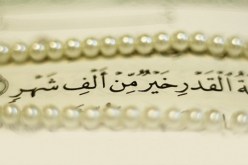 ةُ الْقَدْرِ خَيْرٌ مِّنْ أَلْفِ شَهْرٍ